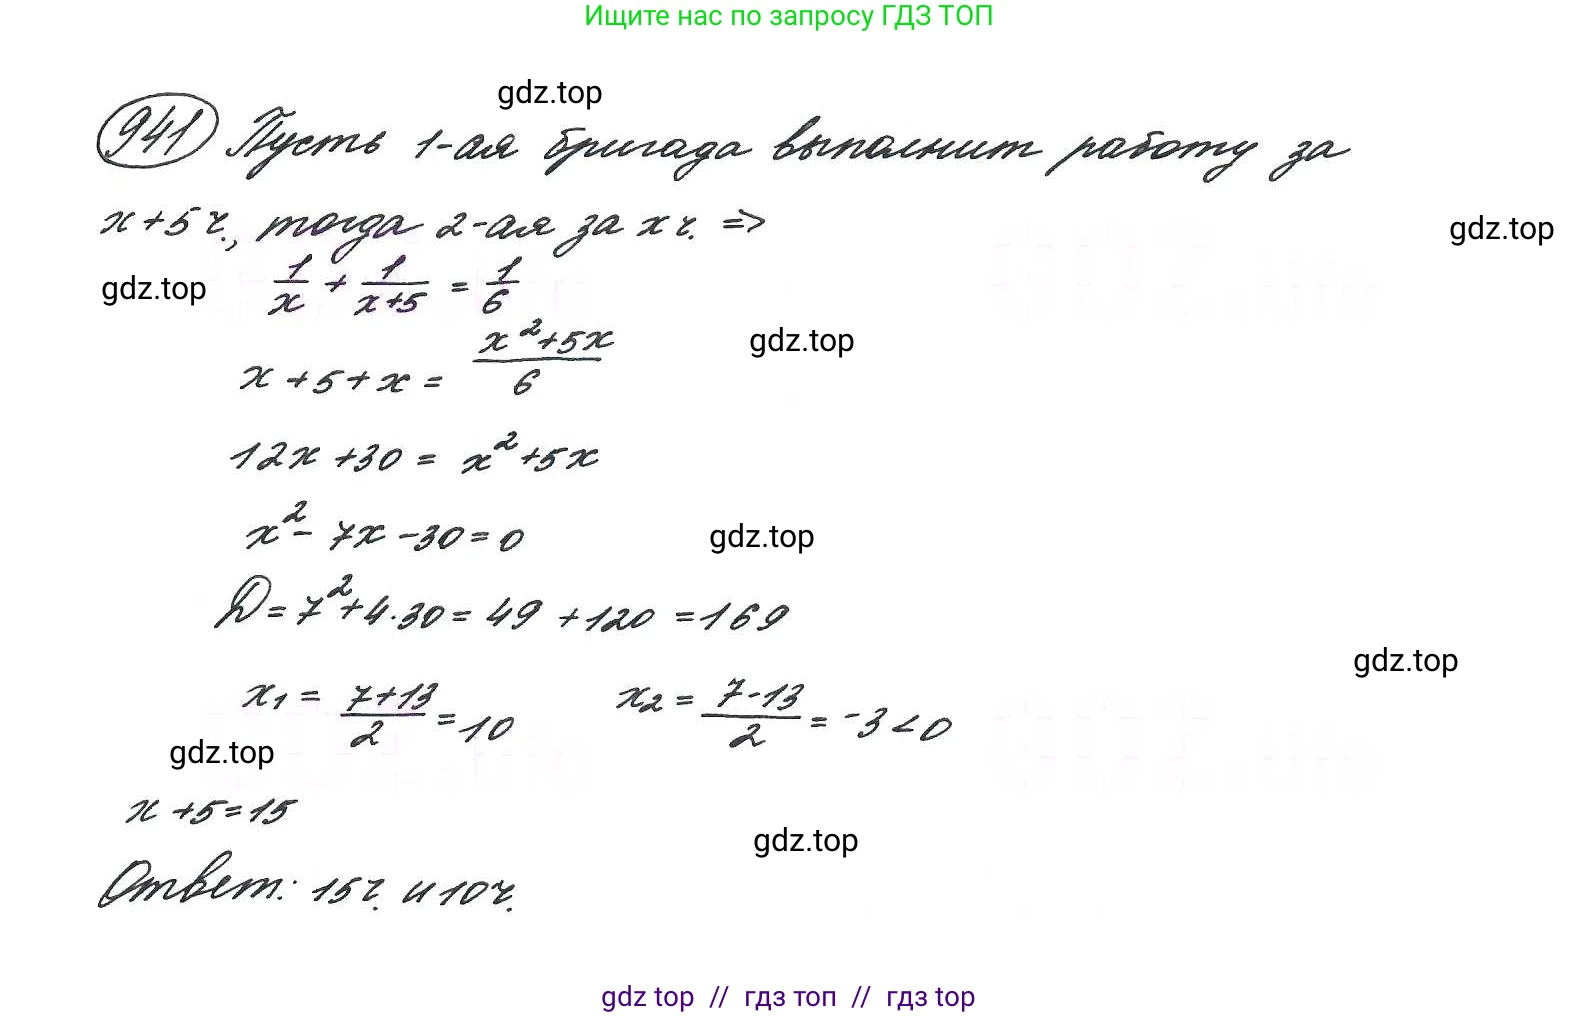 Ищите нас по запросу ГДЗ ТОП
gdz.top
941 Пусть 1-ая бригада выполнит работу за
x+5 ч., тогда 2-ая за x ч. =>
gdz.top
gdz.top
1/x + 1/(x+5) = 1/6
gdz.top
x+5+x = (x²+5x)/6
12x+30 = x²+5x
x²-7x-30=0
gdz.top
D=7²+4·30=49+120=169
gdz.top
x₁ = (7+13)/2 = 10   x₂ = (7-13)/2 = -3<0
gdz.top
x+5=15
gdz.top
Ответ: 15ч. и 10ч.
gdz top // гдз топ // гдз top